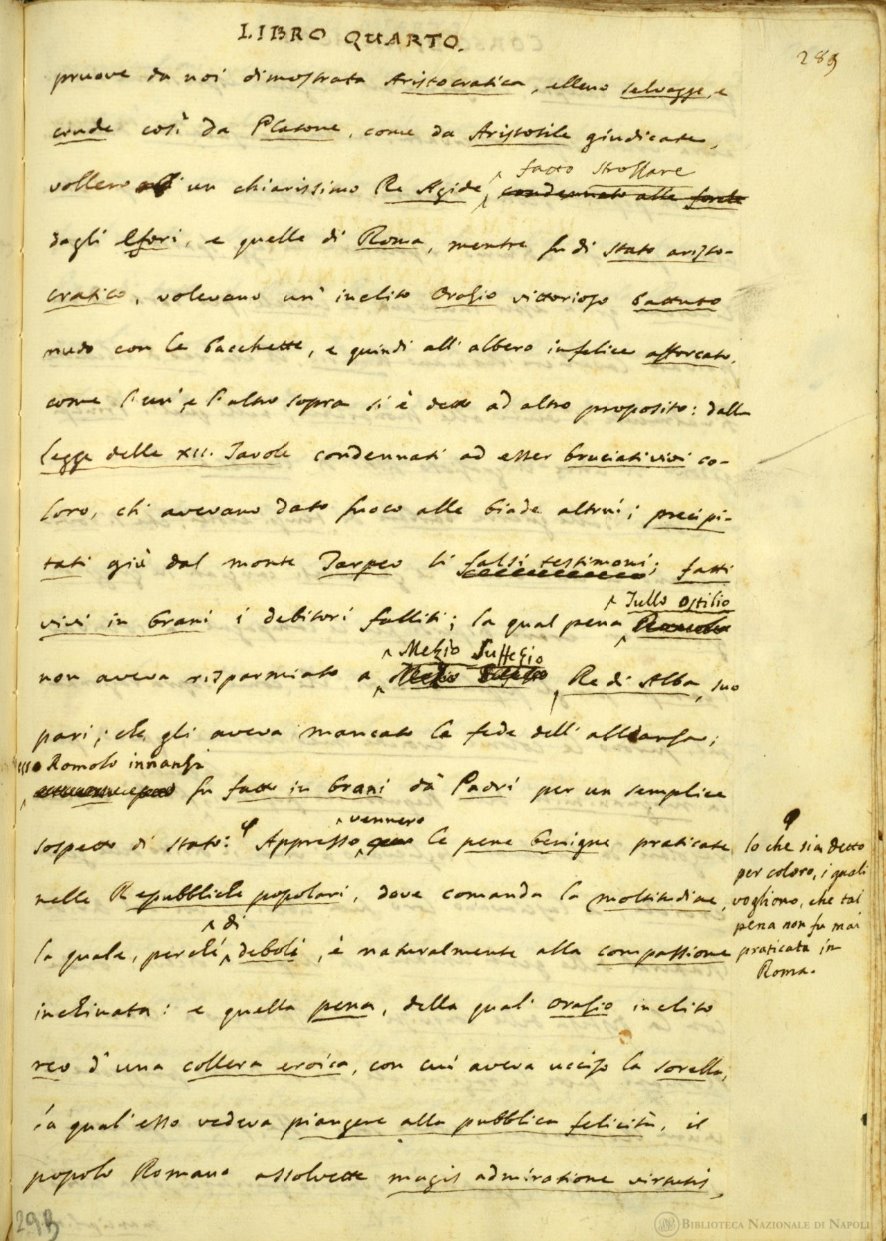 LIBRO QUARTO.
289
pruove da noi dimostrata Aristocratica, elleno selvagge, e
crude così da Platone, come da Aristotile giudicate,
vollero un chiarissimo Re Agide, fatto strozzare
condennato alle forche
dagli Efori, e quelle di Roma, mentre fu di stato aristo-
cratico, volevano un' inclito Orazio vittorioso battuto
nudo con le bacchette, e quindi all' albero infelice afforcato,
come l'un', e l'altro sopra si è detto ad altro proposito: dalla
Legge delle XII. Tavole condennati ad esser bruciati vivi co-
loro, ch' avevano dato fuoco alle biade altrui; precipi-
tati giù dal monte Tarpeo li falsi testimoni; fatti
vivi in brani i debitori falliti; la qual pena Tullo Ostilio
Romolo
non aveva risparmiato a Mezio Suffezio Re di Alba, suo
pari; che gli aveva mancato la fede dell' alleanza;
esso Romolo innanzi
fu fatto in brani da' Padri per un semplice
sospetto di Stato: φ Appresso vennero le pene benigne praticate
nelle Repubbliche popolari, dove comanda la moltitudine,
la quale, perché di deboli, è naturalmente alla compassione
inchinata: e quella pena, della qual' Orazio inclito
reo d' una collera eroica, con cui aveva ucciso la sorella,
la qual' esso vedeva piangere alla pubblica felicità, il
popolo Romano assolvette magis admiratione virtutis,
φ
lo che sia detto
per coloro, i quali
vogliono, che tal
pena non fu mai
praticata in
Roma.
293
BIBLIOTECA NAZIONALE DI NAPOLI